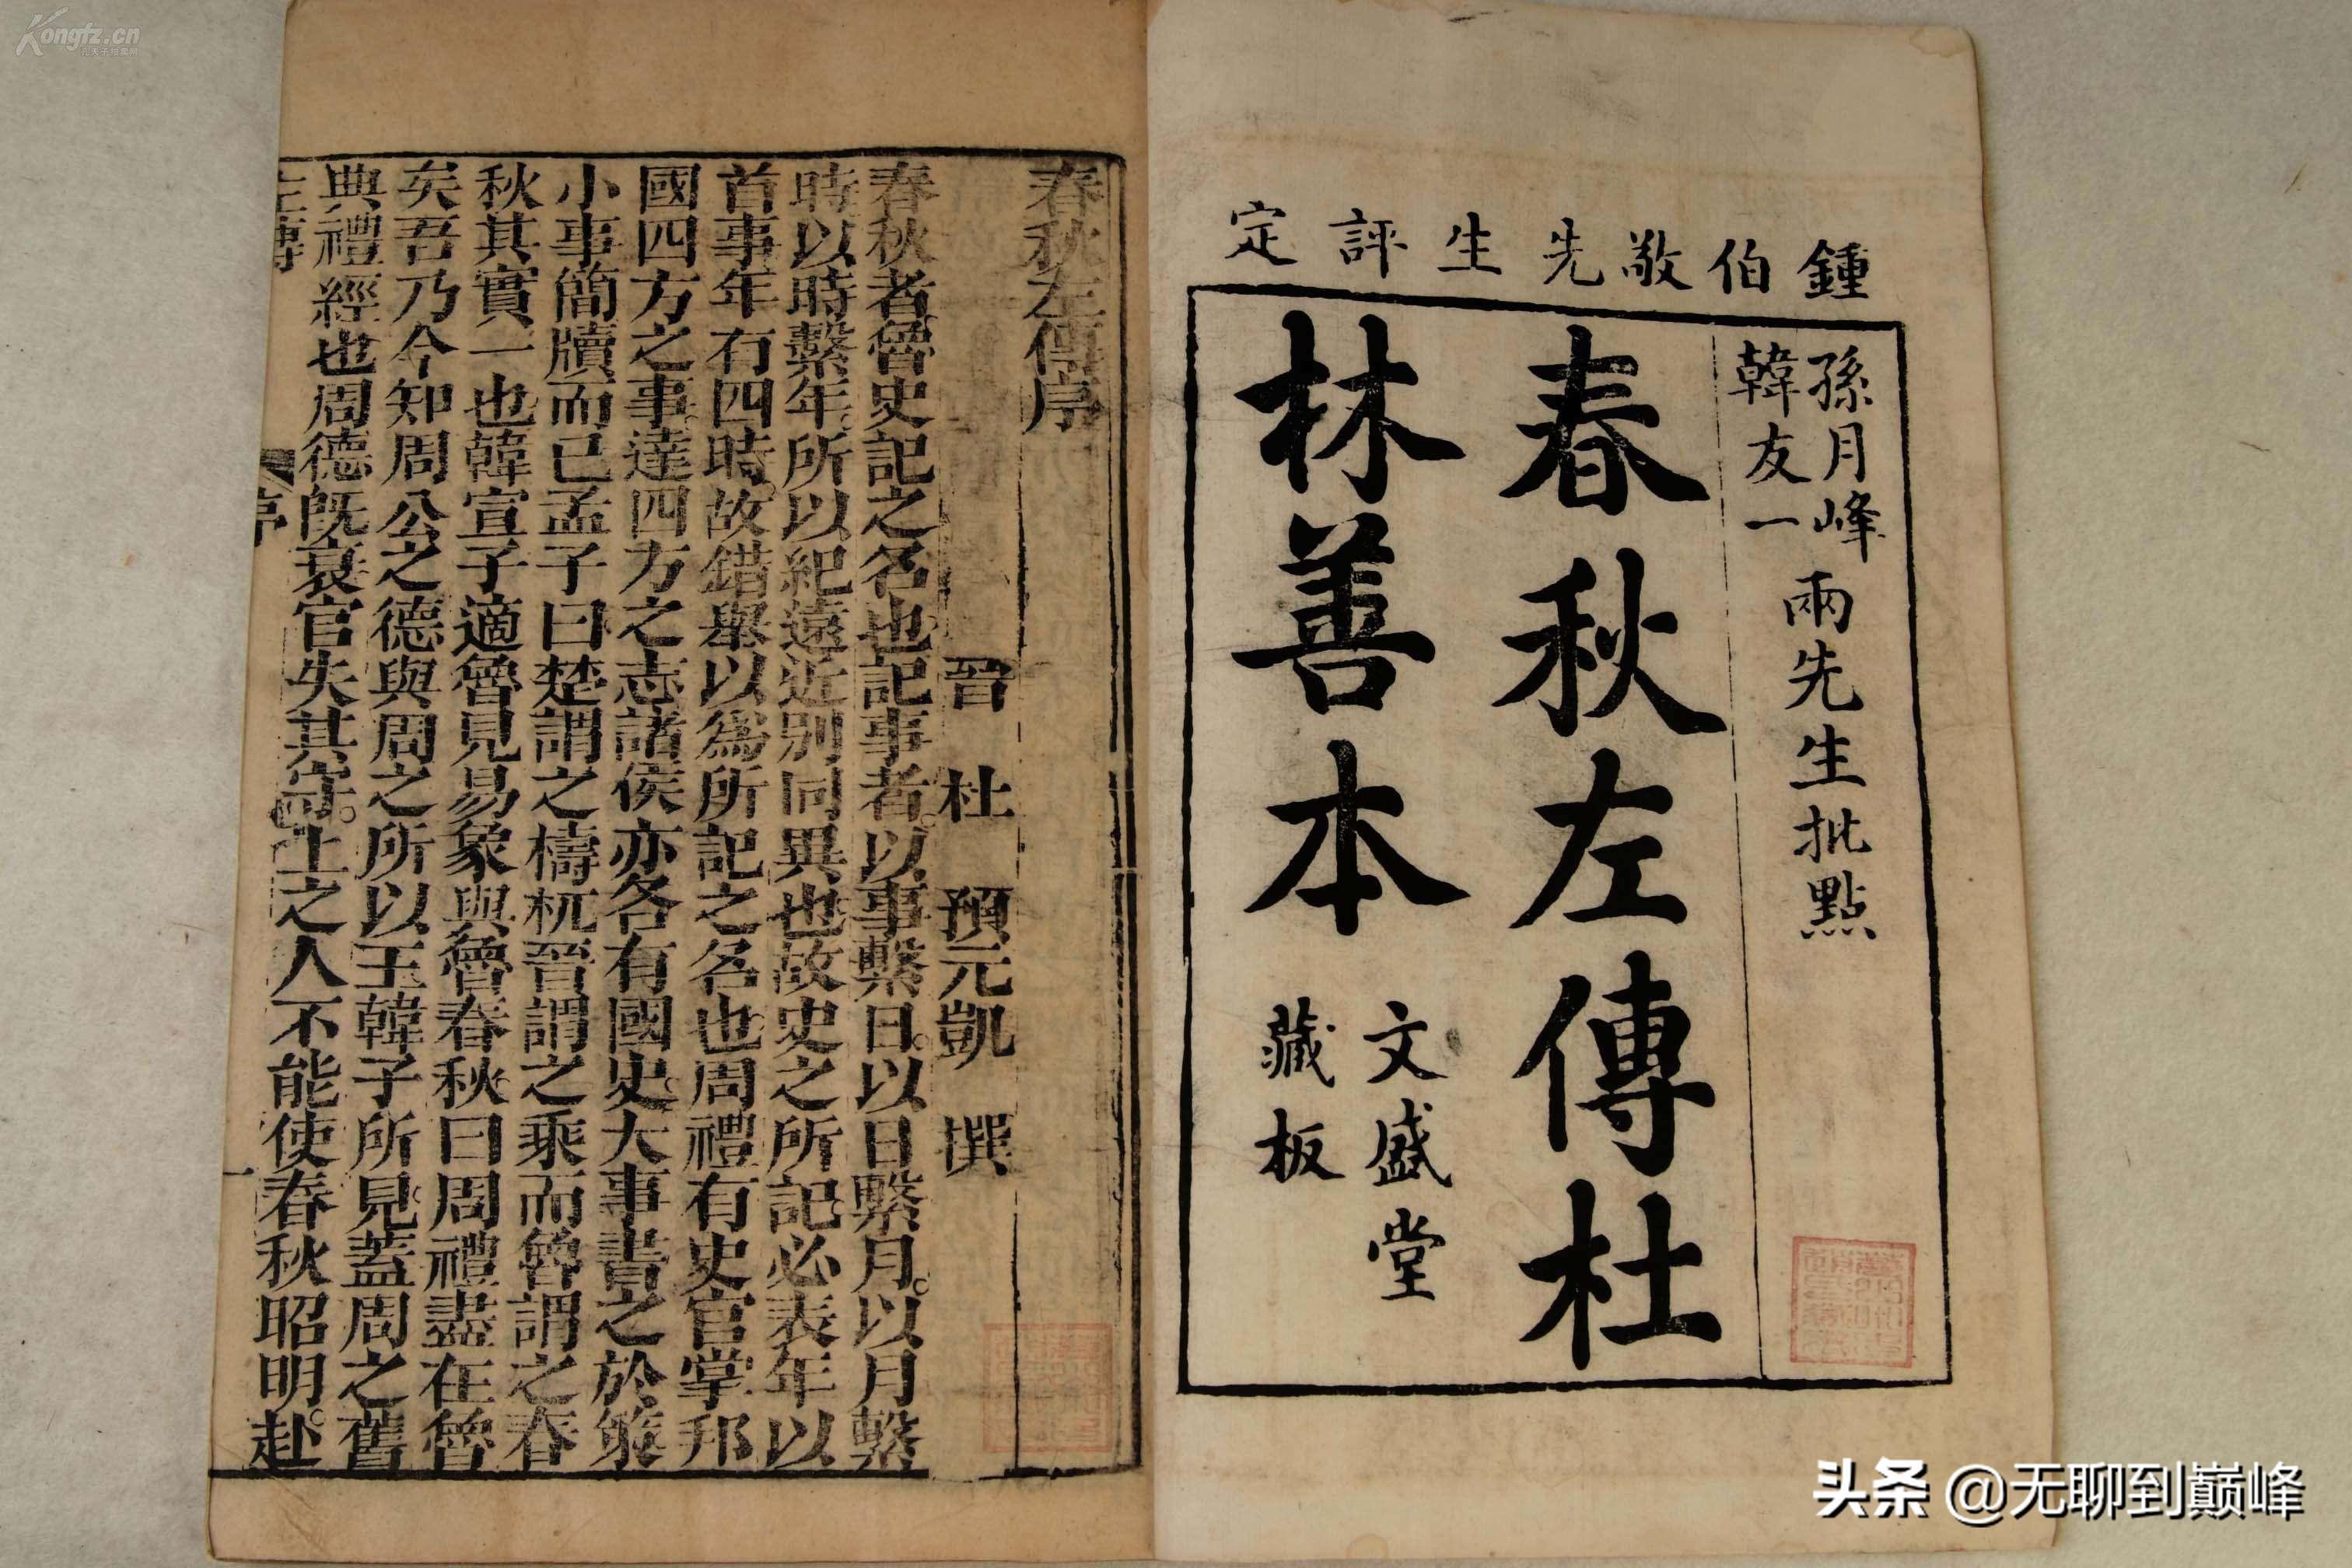 鍾伯敬先生評定
孫月峰
韓友一
兩先生批點
春秋左傳杜
林善本
文盛堂
藏板
春秋左傳序
晉杜預元凱撰
春秋者魯史記之名也記事者以事繫日以日繫月以月繫
時以時繫年所以紀遠近別同異也故史之所記必表年以
首事年有四時故錯舉以為所記之名也周禮有史官掌邦
國四方之事達四方之志諸侯亦各有國史大事書之於策
小事簡牘而已孟子曰楚謂之檮杌晉謂之乘而魯謂之春
秋其實一也韓宣子適魯見易象與魯春秋曰周禮盡在魯
矣吾乃今知周公之德與周之所以王韓子所見蓋周之舊
典禮經也周德旣衰官失其守上之人不能使春秋昭明赴
左傳
序
一
Kongfz.cn
头条 @无聊到巅峰